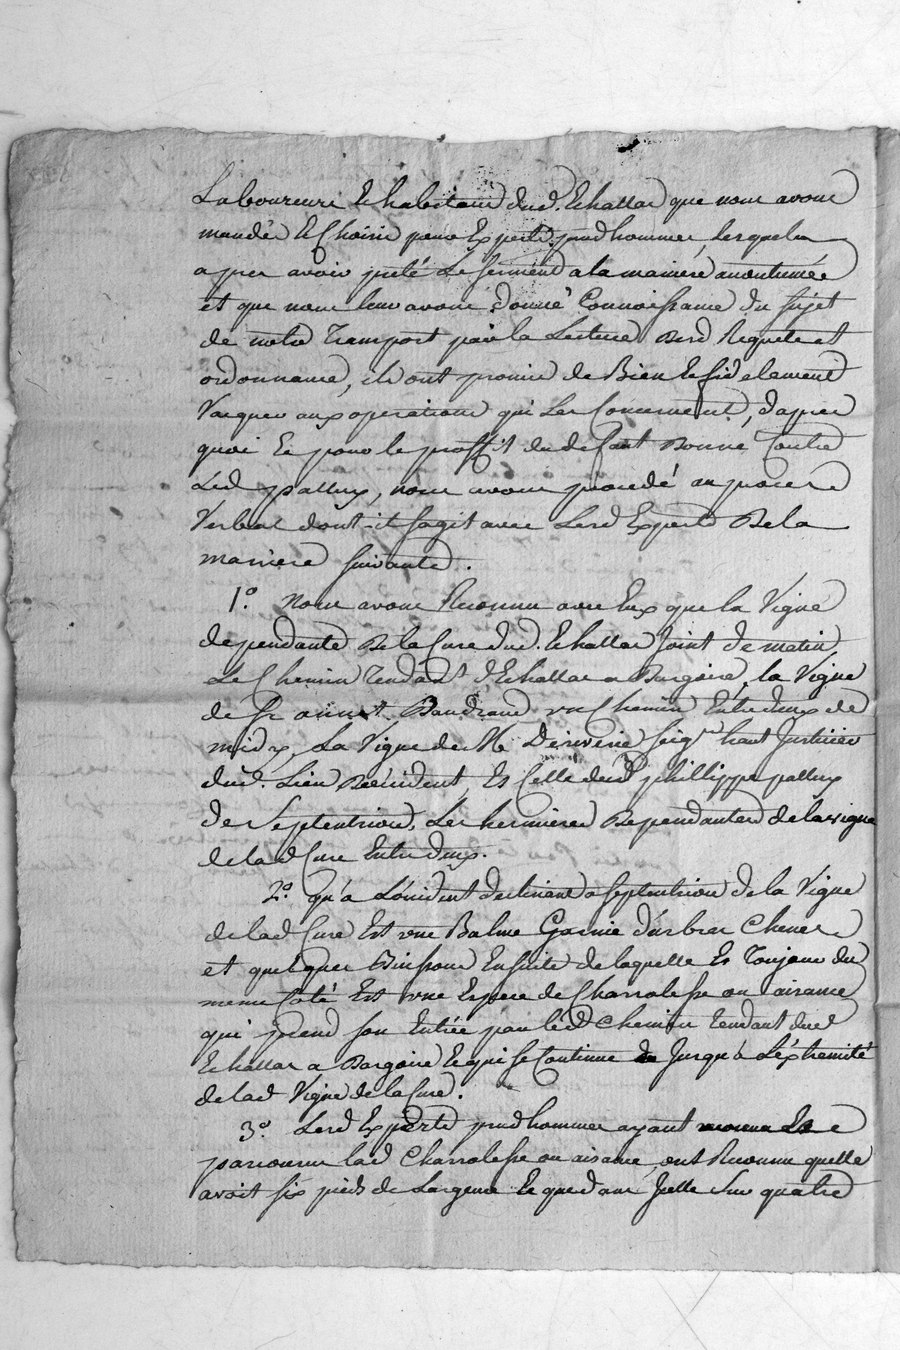 Laboureurs Et habitans dud. Echallas que nous avons
mandés Et Choisis pour Experts prudhommes, Lesquels
apres avoir prêté Le serment a la maniere accoutumée
et que nous leur avons donné Connoissance du sujet
de notre Transport par la Lecture Desd Requete et
ordonnance, ils ont promis de Bien Et fidelement
Vaquer aux operations qui Les Concernent, d'apres
quoi Et pour le proffit du defaut Donné Contre
Led pallux, nous avons procedé au proces
Verbal dont-it s'agit avec Lesd Experts De la
maniere suivante.
1°. Nous avons Reconnu avec Eux que la Vigne
dependante De la Cure dud. Echallas Joint de matin
Le Chemin Tendant d'Echallas a Burgoire, la Vigne
de Sr Baudrand un Chemin Entre deux de
midy, La Vigne de Mr Deriverie seigr haut Justicier
dud. Lieu Deoccident, Et Celle dud phillippe pallux
de Septentrion, Les hermieres Dependantes de la vigne
de lad Cure Entre deux.
2°. qu'a L'occident declinant a septentrion de la Vigne
de lad Cure Est une Balme Garnie d'arbres Chenes
et quelques Buissons Ensuite de laquelle Et Toujours du
meme Coté Est une Espece de Charralesse ou aisance
qui prend son Entrée par led Chemin tendant dud
Echallas a Bargoire Et qui se Continue Jusqu'a L'exthemité
de lad Vigne de la Cure.
3°. Lesd Experts prudhommes ayant
parcouru lad Charralesse ou aisance, ont Reconnu quelle
avoit six pieds de Largeur Et que dans Icelle Sur quatre